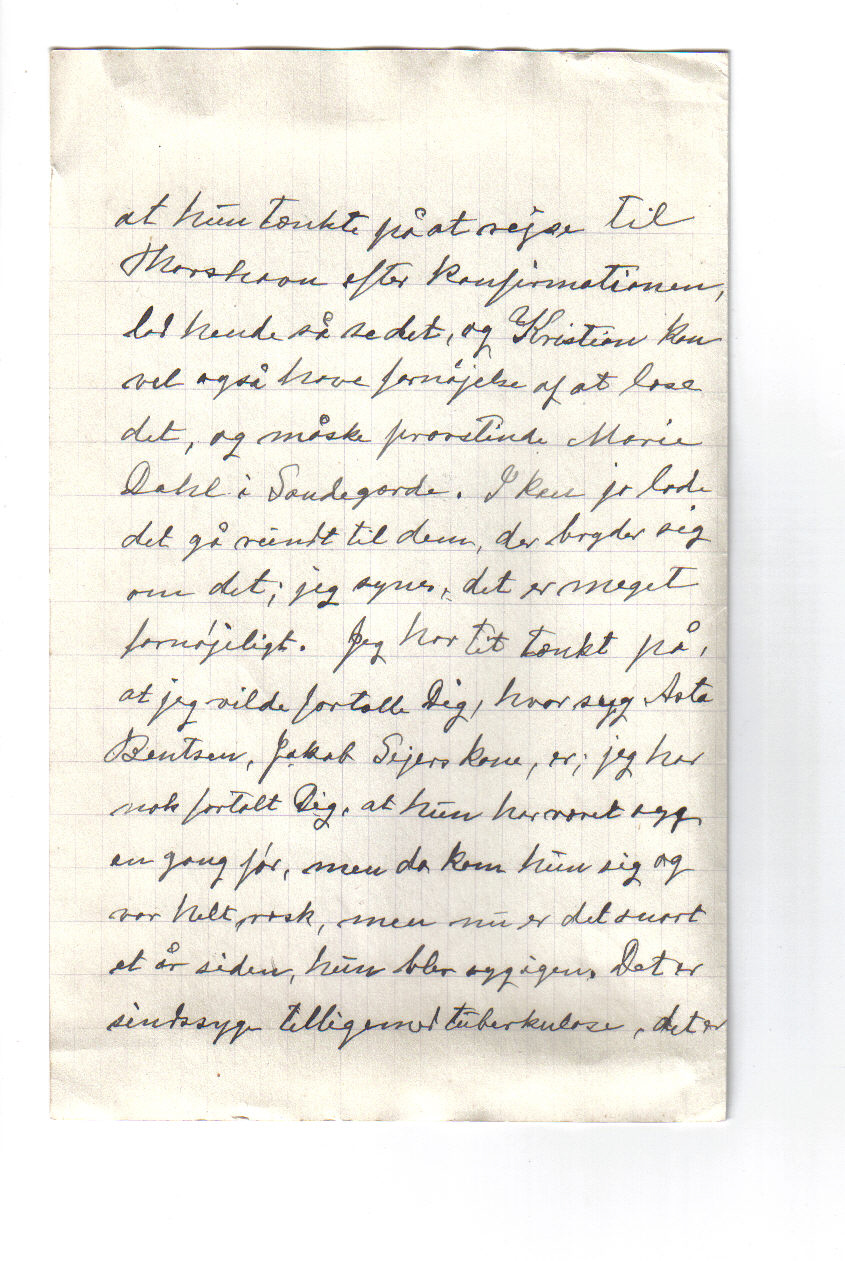 at hun tænkte på at rejse til
Thorshavn efter konfirmationen,
lad hende så se det, og Kristian kan
vel også have fornøjelse af at læse
det, og måske provstinde Marie
Dahl i Sandegærde. I kan jo lade
det gå rundt til dem, der bryder sig
om det; jeg synes, det er meget
fornøjeligt. Jeg har tit tænkt på,
at jeg vilde fortælle Dig, hvor syg Asta
Bentsen, Jakob Sejers kone, er; jeg har
nok fortalt Dig, at hun har været syg
en gang før, men da kom hun sig og
var helt rask, men nu er det snart
et år siden, hun blev syg igen. Det er
sindssyge tilligemed tuberkulose, det er